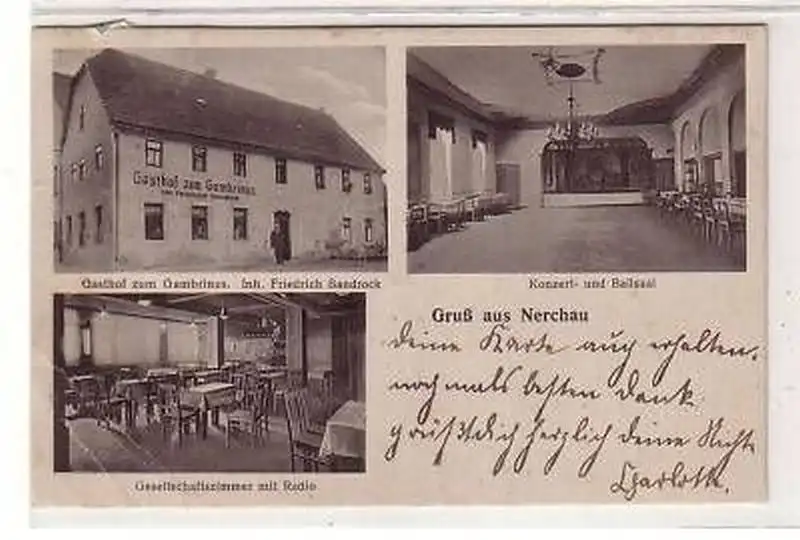 Gasthof zum Gambrinus
Gasthof zum Gambrinus. Inh. Friedrich Sandrock
Konzert- und Ballsaal
Gruß aus Nerchau
deine Karte auch erhalten.
nochmals besten Dank
grüßt dich herzlich deine Nichte
Charlotte.
Gesellschaftszimmer mit Radio